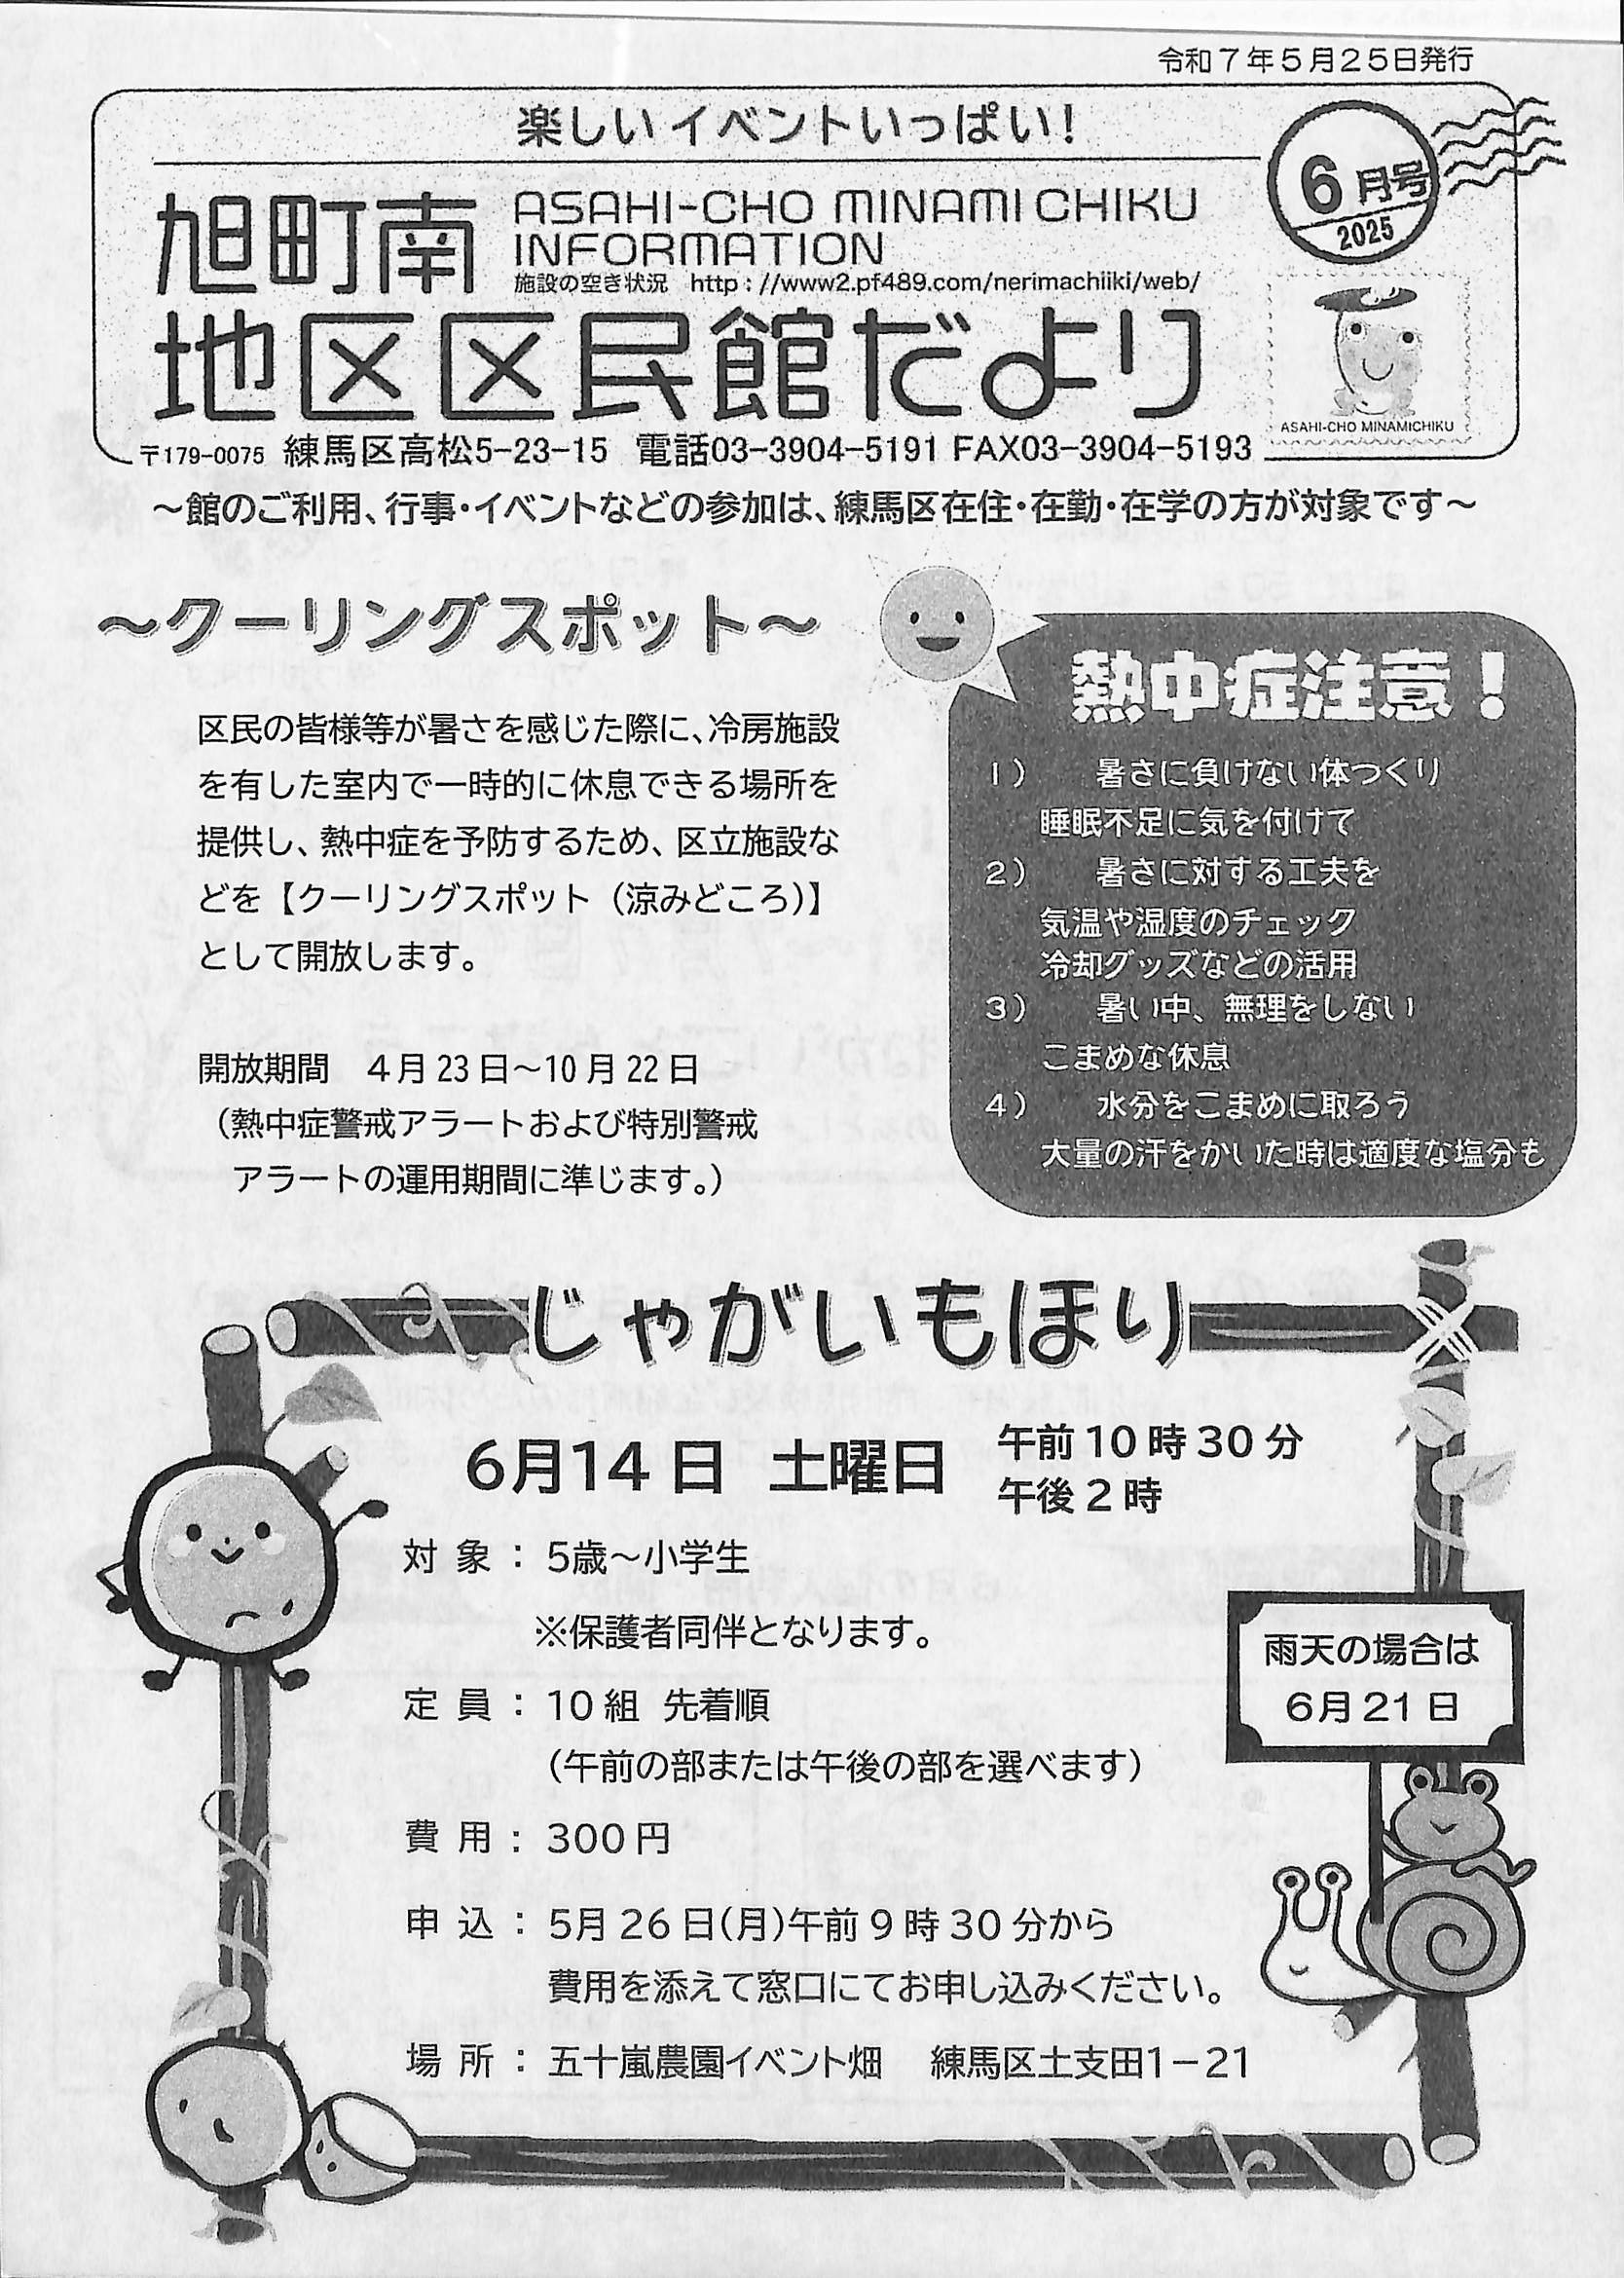 令和7年5月25日発行
楽しいイベントいっぱい!
6月号
2025
旭町南
ASAHI-CHO MINAMI CHIKU
INFORMATION
施設の空き状況 http://www2.pf489.com/nerimachiiki/web/
地区区民館だより
ASAHI-CHO MINAMICHIKU
〒179-0075 練馬区高松5-23-15 電話03-3904-5191 FAX03-3904-5193
～館のご利用、行事・イベントなどの参加は、練馬区在住・在勤・在学の方が対象です～
～クーリングスポット～
区民の皆様等が暑さを感じた際に、冷房施設
を有した室内で一時的に休息できる場所を
提供し、熱中症を予防するため、区立施設な
どを【クーリングスポット（涼みどころ)】
として開放します。
開放期間 4月23日～10月22日
（熱中症警戒アラートおよび特別警戒
アラートの運用期間に準じます。）
熱中症注意！
1） 暑さに負けない体つくり
睡眠不足に気を付けて
2） 暑さに対する工夫を
気温や湿度のチェック
冷却グッズなどの活用
3） 暑い中、無理をしない
こまめな休息
4） 水分をこまめに取ろう
大量の汗をかいた時は適度な塩分も
じゃがいもほり
6月14日 土曜日
午前10時30分
午後2時
対象：5歳～小学生
※保護者同伴となります。
定員：10組 先着順
（午前の部または午後の部を選べます）
費用：300円
申込：5月26日(月)午前9時30分から
費用を添えて窓口にてお申し込みください。
場所：五十嵐農園イベント畑 練馬区土支田1－21
雨天の場合は
6月21日